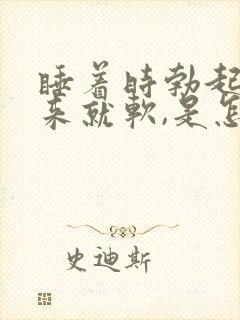 睡着时勃起
来就软,是怎
史迪斯